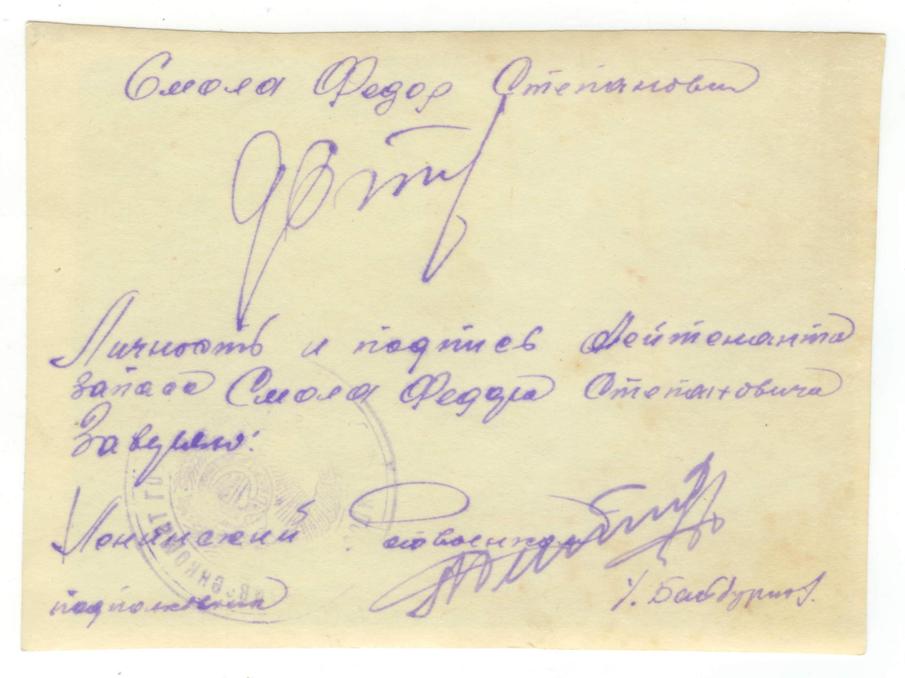 Смола Федор Степанович
Личность и подпись Лейтенанта
запаса Смола Федора Степановича
Заверяю:
Ленинский Райвоенком
подполковник